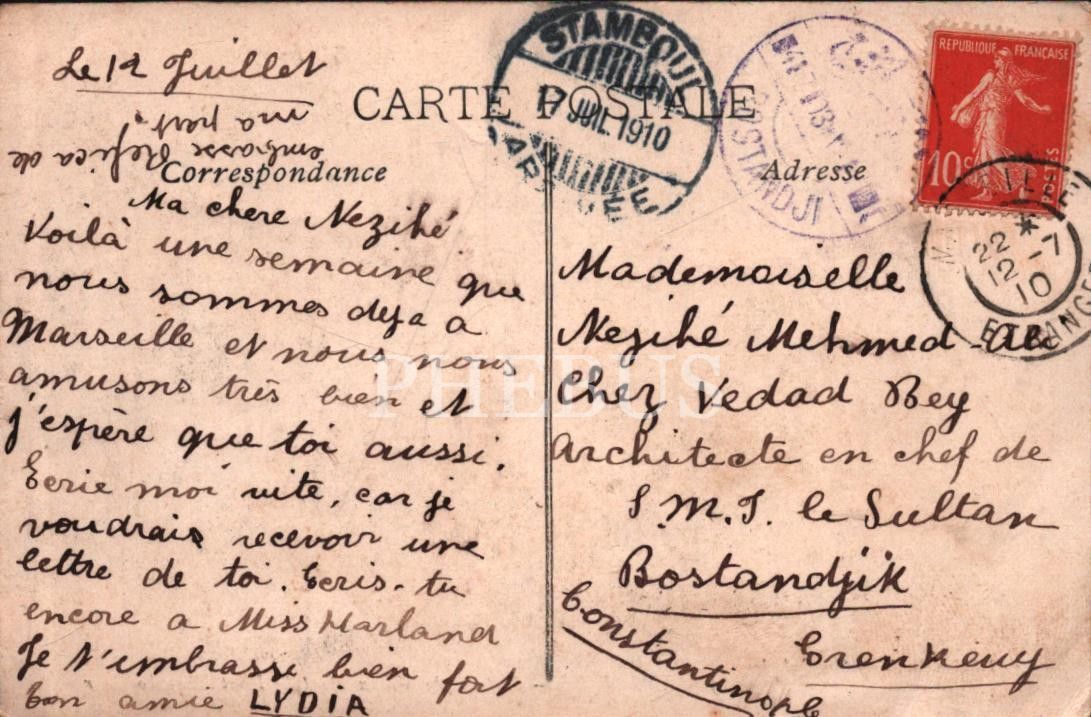 Le 12 Juillet
embrasse Refica de
ma part.
CARTE POSTALE
Correspondance
Ma chere Nezihé
Voilà une semaine que
nous sommes deja a
Marseille et nous nous
amusons très bien et
j'espère que toi aussi.
Ecrie moi vite, car je
voudrais recevoir une
lettre de toi. Ecris-tu
encore a Miss Harland
Je t'embrasse bien fort
ton amie LYDIA
STAMBOUL
17 JUIL 1910
ARRIVÉE
BOSTANDJI
Adresse
REPUBLIQUE FRANÇAISE
10c POSTES
22 *
12 - 7
10
ETRANGER
Mademoiselle
Nezihé Mehmed-Ali
Chez Vedad Bey
Architecte en chef de
S. M. I. le Sultan
Bostandjik
Erenkeuy
Constantinople
PHEBUS